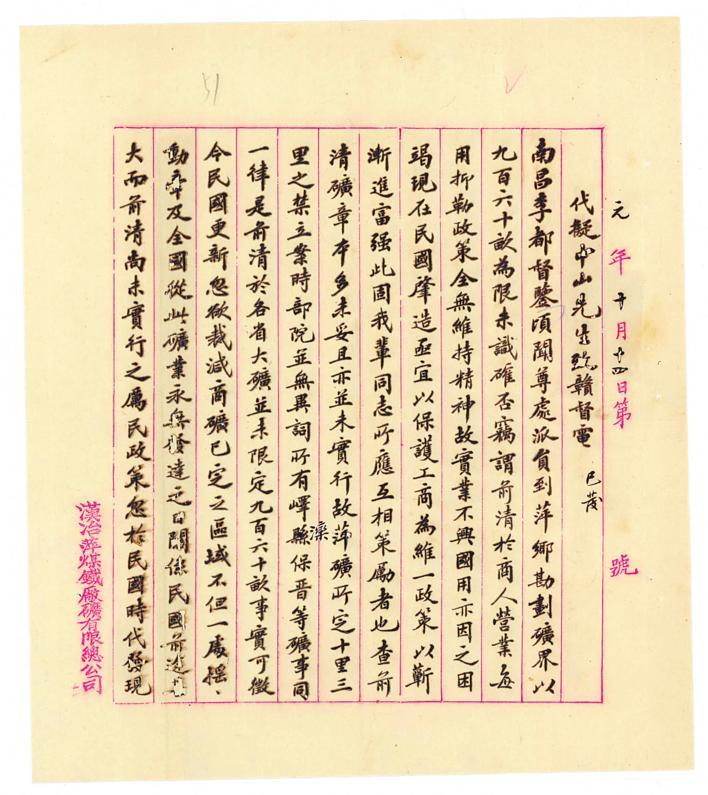 51
元年十月十四日第 號
代擬中山先生致贛督電 已發
南昌李都督鑒頃聞尊處派員到萍鄉勘劃礦界以
九百六十畝為限未識確否竊謂前清於商人營業每
用抑勒政策全無維持精神故實業不興國用亦因之困
竭現在民國肇造亟宜以保護工商為維一政策以蘄
漸進富强此固我輩同志所應互相策勵者也查前
清礦章本多未妥且亦並未實行故萍礦所定十里三
里之禁立案時部院並無異詞所有嶧縣灤保晉等礦事同
一律是前清於各省大礦並未限定九百六十畝事實可徵
今民國更新忽欲裁減商礦已定之區域不但一處摇、
動牵及全國從此礦業永無發達之日關係民國前途甚
大而前清尚未實行之厲民政策忽於民國時代發現
漢冶萍煤鐵廠礦有限總公司